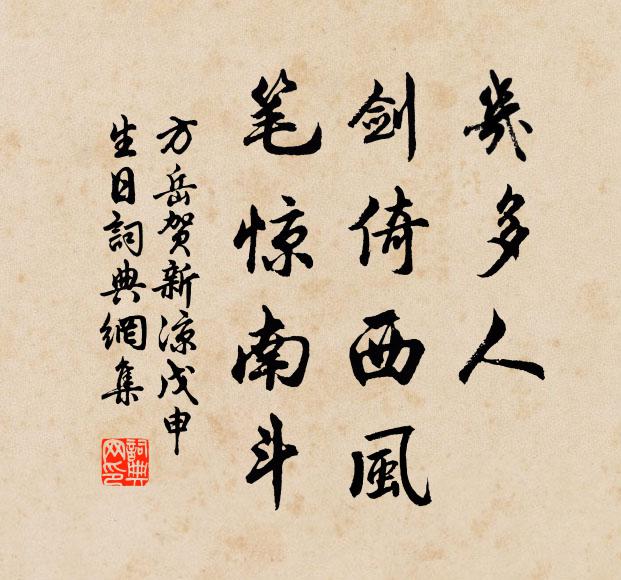 幾多人
剑倚西風
笔惊南斗
方岳贺新凉戊申
生日詞典網集
詞典
网印